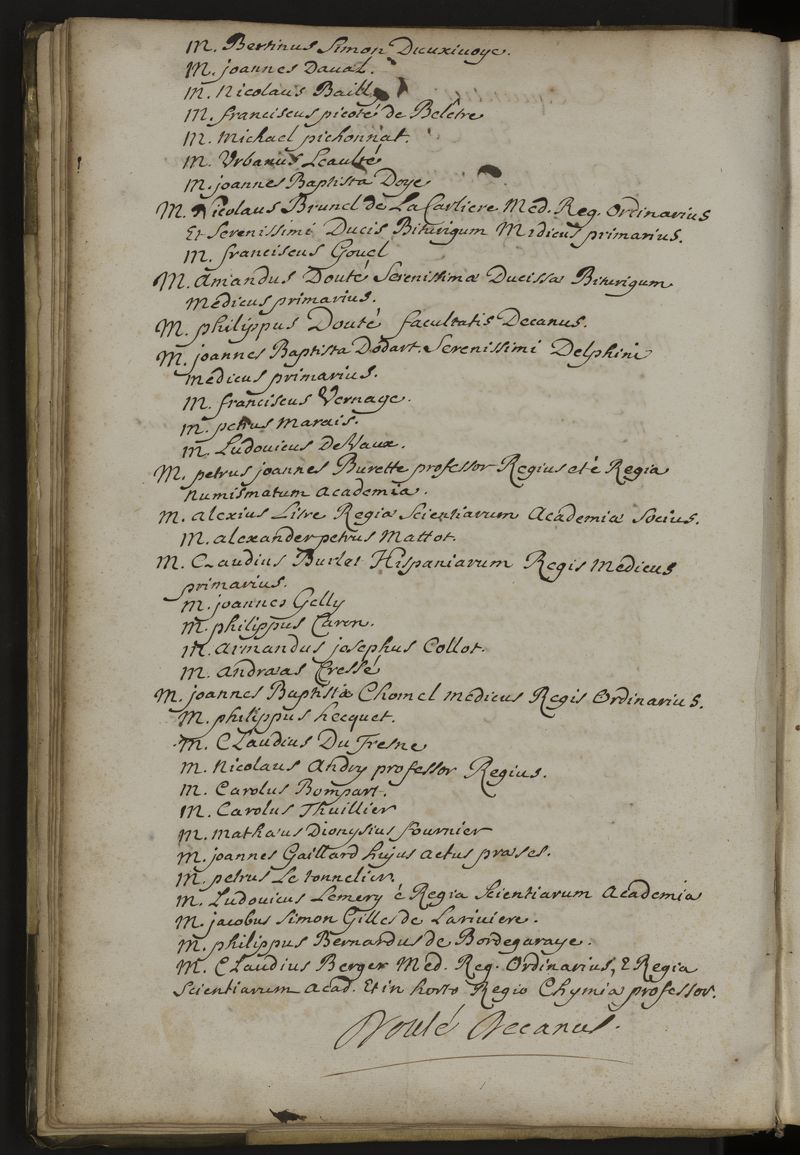 M. Bertinus Simon Dieuxivoye.
M. joannes Daval.
M. Nicolaus Bailly
M. franciscus picoté de Belêtre
M. Michael pichonnat.
M. Urbanus Leaulté
M. joannes Baptista Doye
M. Nicolaus Brunel de La Carliere Med. Reg. Ordinarius
Et Serenissimi Ducis Biturigum Midicus primarius.
M. franciscus Gouel
M. Amandus Douté Serenissimæ Ducissæ Biturigum
Medicus primarius.
M. philippus Douté facultatis Decanus.
M. joannes Baptista Dodart. Serenissimi Delphini
Medicus primarius.
M. franciscus Vernage.
M. petrus Marais.
M. Ludovicus DeVaux.
M. petrus joannes Burette professor Regius et è Regia
Numismatum academia.
M. alexius Litre Regiæ Scientiarum Academiæ Socius.
M. alexander petrus Mattot.
M. Claudius Burlet Hispaniarum Regis Medicus
primarius.
M. joannes Gelly
M. philippus Caron.
M. armandus josephus Collot.
M. andræas Cressé
M. joannes Baptista Chomel medicus Regis Ordinarius.
M. philippus hecquet.
M. Claudius Du Fresne
M. Nicolaus Andry professor Regius.
M. Carolus Bompart.
M. Carolus Thuillier
M. mathæus Dionysius fournier
M. joannes Gaillard hujus actus præses.
M. petrus Le tonnelier.
M. Ludovicus Lemery è Regia Scientiarum Academia
M. jacobus Simon Gilles de Lariviere.
M. philippus Bernardus de Bordegaraye.
M. Claudius Berger Med. Reg. Ordinarius, è Regia
Scientiarum acad. Et in horto Regio Chymiæ professor.
Douté Decanus.